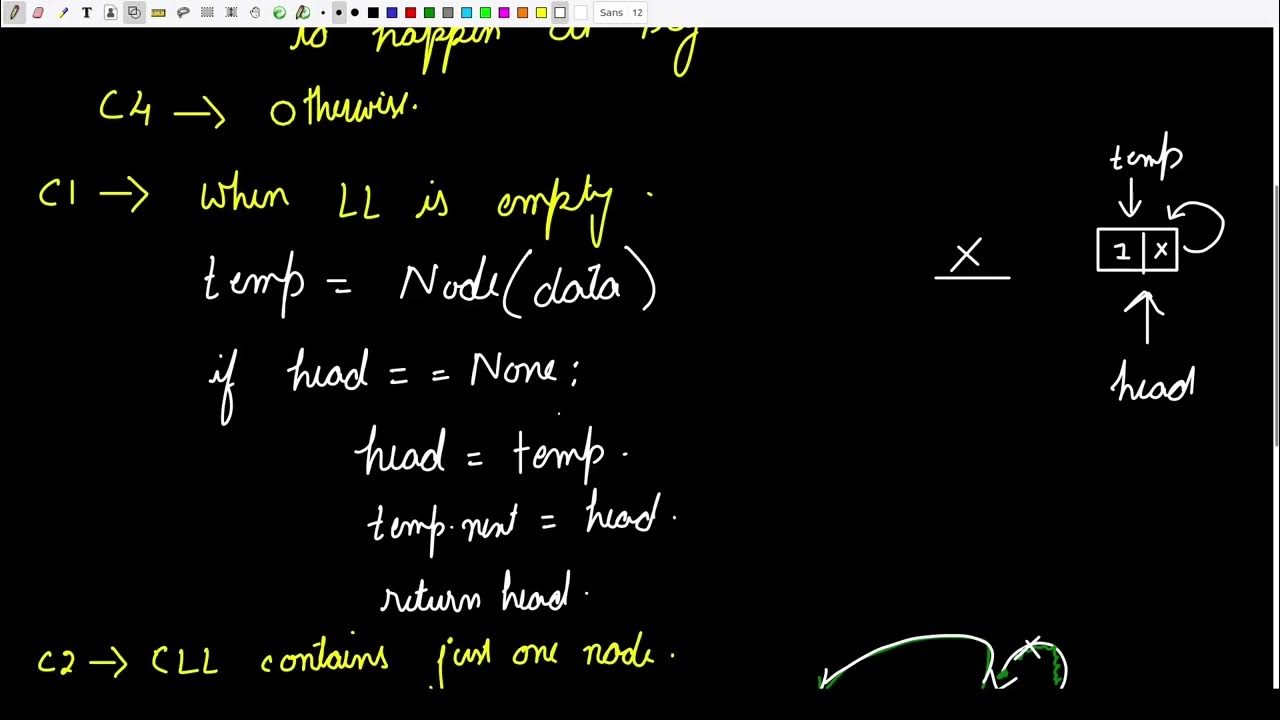 Sans 12
to happen at beg
C4 → Otherwise.
C1 → When LL is empty.
temp = Node(data)
if head == None:
head = temp.
temp.next = head.
return head.
C2 → CLL contains just one node.
temp
1 x
head
x